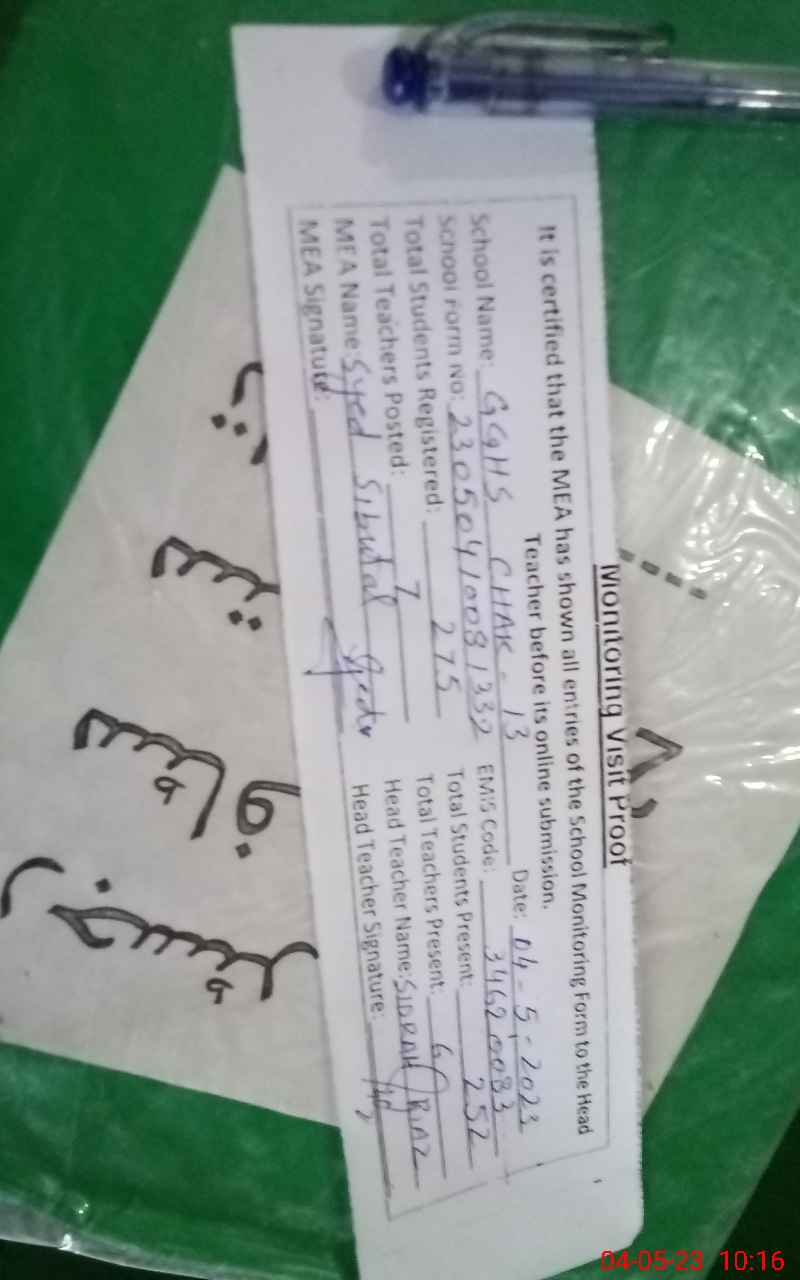 Monitoring Visit Proof
It is certified that the MEA has shown all entries of the School Monitoring Form to the Head
Teacher before its online submission.
Date: 04-5-2023
School Name: GGHS CHAK-13
School Form No: 23050410081332 EMIS Code: 34620083
Total Students Registered: 275 Total Students Present: 252
Total Teachers Posted: 7 Total Teachers Present: 6
MEA Name: Syed Head Teacher Name: SIDRAH RIAZ
MEA Signature: Head Teacher Signature:
04-05-23 10:16